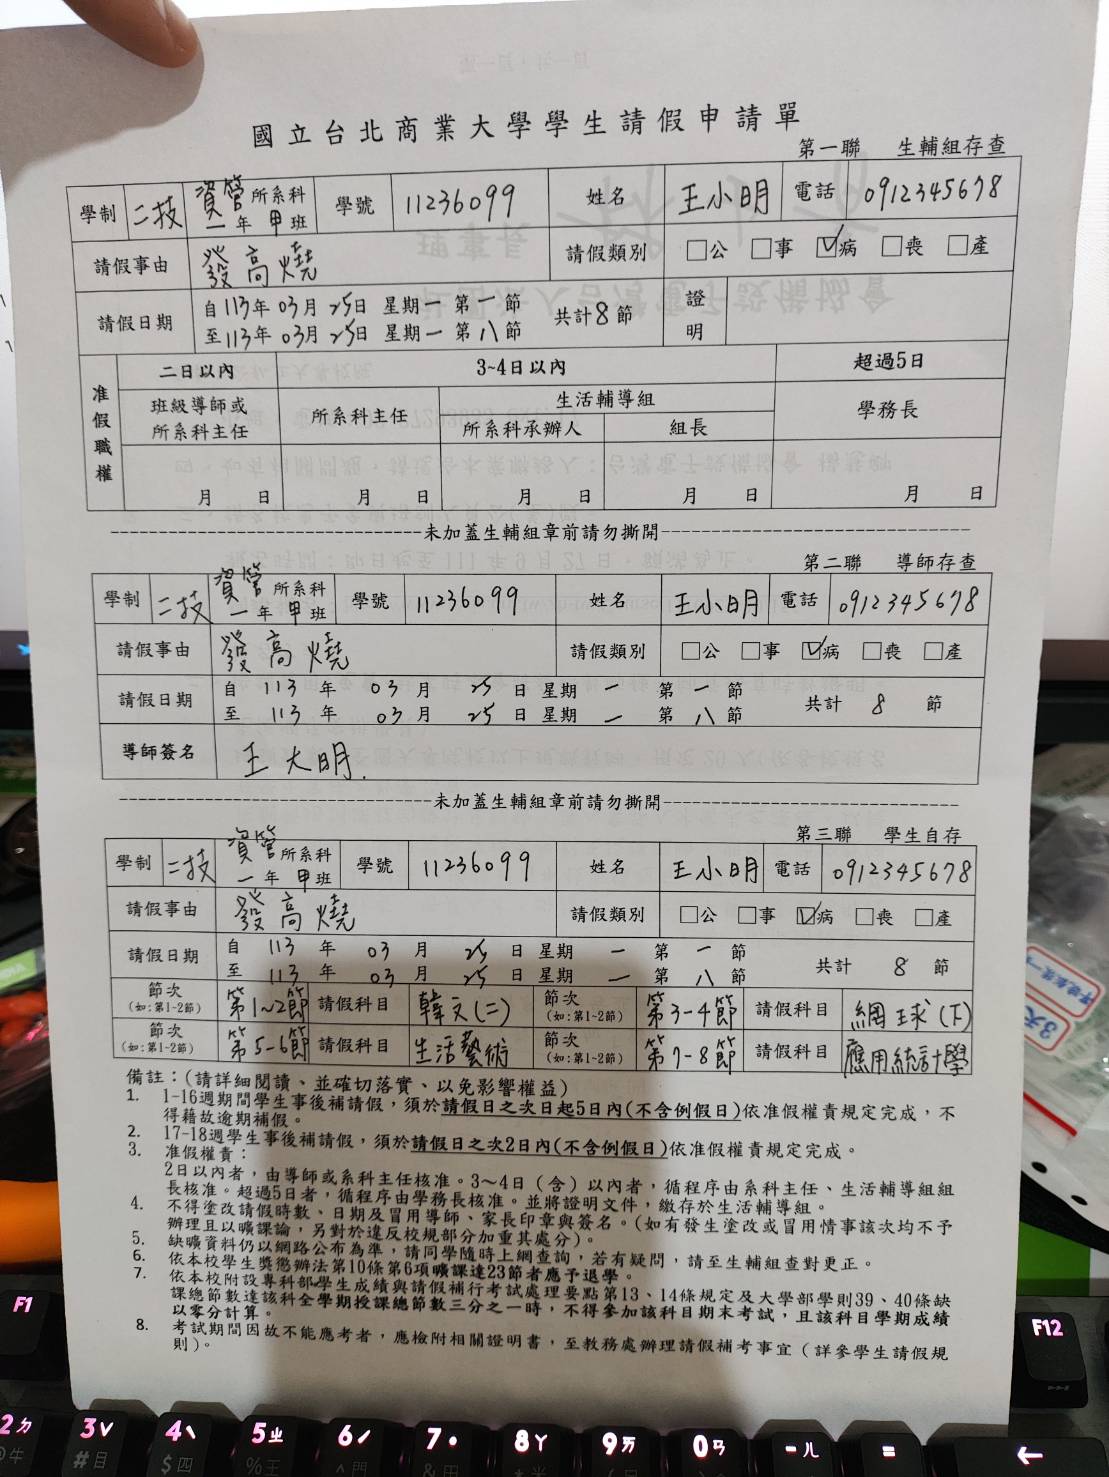 國立台北商業大學學生請假申請單
第一聯 生輔組存查
學制 二技 資管所系科 一年甲班 學號 11236099 姓名 王小明 電話 0912345678
請假事由 發高燒 請假類別 □公 □事 ☑病 □喪 □產
請假日期 自113年03月25日 星期一 第一節
至113年03月25日 星期一 第八節 共計8節 證明
准假職權 二日以內 3~4日以內 超過5日
班級導師或所系科主任 所系科主任 生活輔導組 學務長
所系科承辦人 組長
月 日 月 日 月 日 月 日 月 日
未加蓋生輔組章前請勿撕開
第二聯 導師存查
學制 二技 資管所系科 一年甲班 學號 11236099 姓名 王小明 電話 0912345678
請假事由 發高燒 請假類別 □公 □事 ☑病 □喪 □產
請假日期 自 113 年 03 月 25 日 星期 一 第 一 節
至 113 年 03 月 25 日 星期 一 第 八 節 共計 8 節
導師簽名 王大明.
未加蓋生輔組章前請勿撕開
第三聯 學生自存
學制 二技 資管所系科 一年甲班 學號 11236099 姓名 王小明 電話 0912345678
請假事由 發高燒 請假類別 □公 □事 ☑病 □喪 □產
請假日期 自 113 年 03 月 25 日 星期 一 第 一 節
至 113 年 03 月 25 日 星期 一 第 八 節 共計 8 節
節次(如:第1~2節) 第1~2節 請假科目 韓文(二) 節次(如:第1~2節) 第3-4節 請假科目 網球(下)
節次(如:第1~2節) 第5-6節 請假科目 生活藝術 節次(如:第1~2節) 第7-8節 請假科目 應用統計學
備註：(請詳細閱讀、並確切落實、以免影響權益)
1. 1-16週期間學生事後補請假，須於請假日之次日起5日內(不含例假日)依准假權責規定完成，不
得藉故逾期補假。
2. 17-18週學生事後補請假，須於請假日之次2日內(不含例假日)依准假權責規定完成。
3. 准假權責：
2日以內者，由導師或系科主任核准。3~4日（含）以內者，循程序由系科主任、生活輔導組組
長核准。超過5日者，循程序由學務長核准。並將證明文件，繳存於生活輔導組。
4. 不得塗改請假時數、日期及冒用導師、家長印章與簽名。(如有發生塗改或冒用情事該次均不予
辦理且以曠課論，另對於違反校規部分加重其處分)。
5. 缺曠資料仍以網路公布為準，請同學隨時上網查詢，若有疑問，請至生輔組查對更正。
6. 依本校學生獎懲辦法第10條第6項曠課達23節者應予退學。
7. 依本校附設專科部學生成績與請假補行考試處理要點第13、14條規定及大學部學則39、40條缺
課總節數達該科全學期授課總節數三分之一時，不得參加該科目期末考試，且該科目學期成績
以零分計算。
8. 考試期間因故不能應考者，應檢附相關證明書，至教務處辦理請假補考事宜（詳參學生請假規
則)。
F1
F12
2ㄉ
3ˇ
4ˋ
5ㄓ
6ˊ
7˙
8ㄚ
9ㄞ
0ㄢ
-ㄦ
=
←